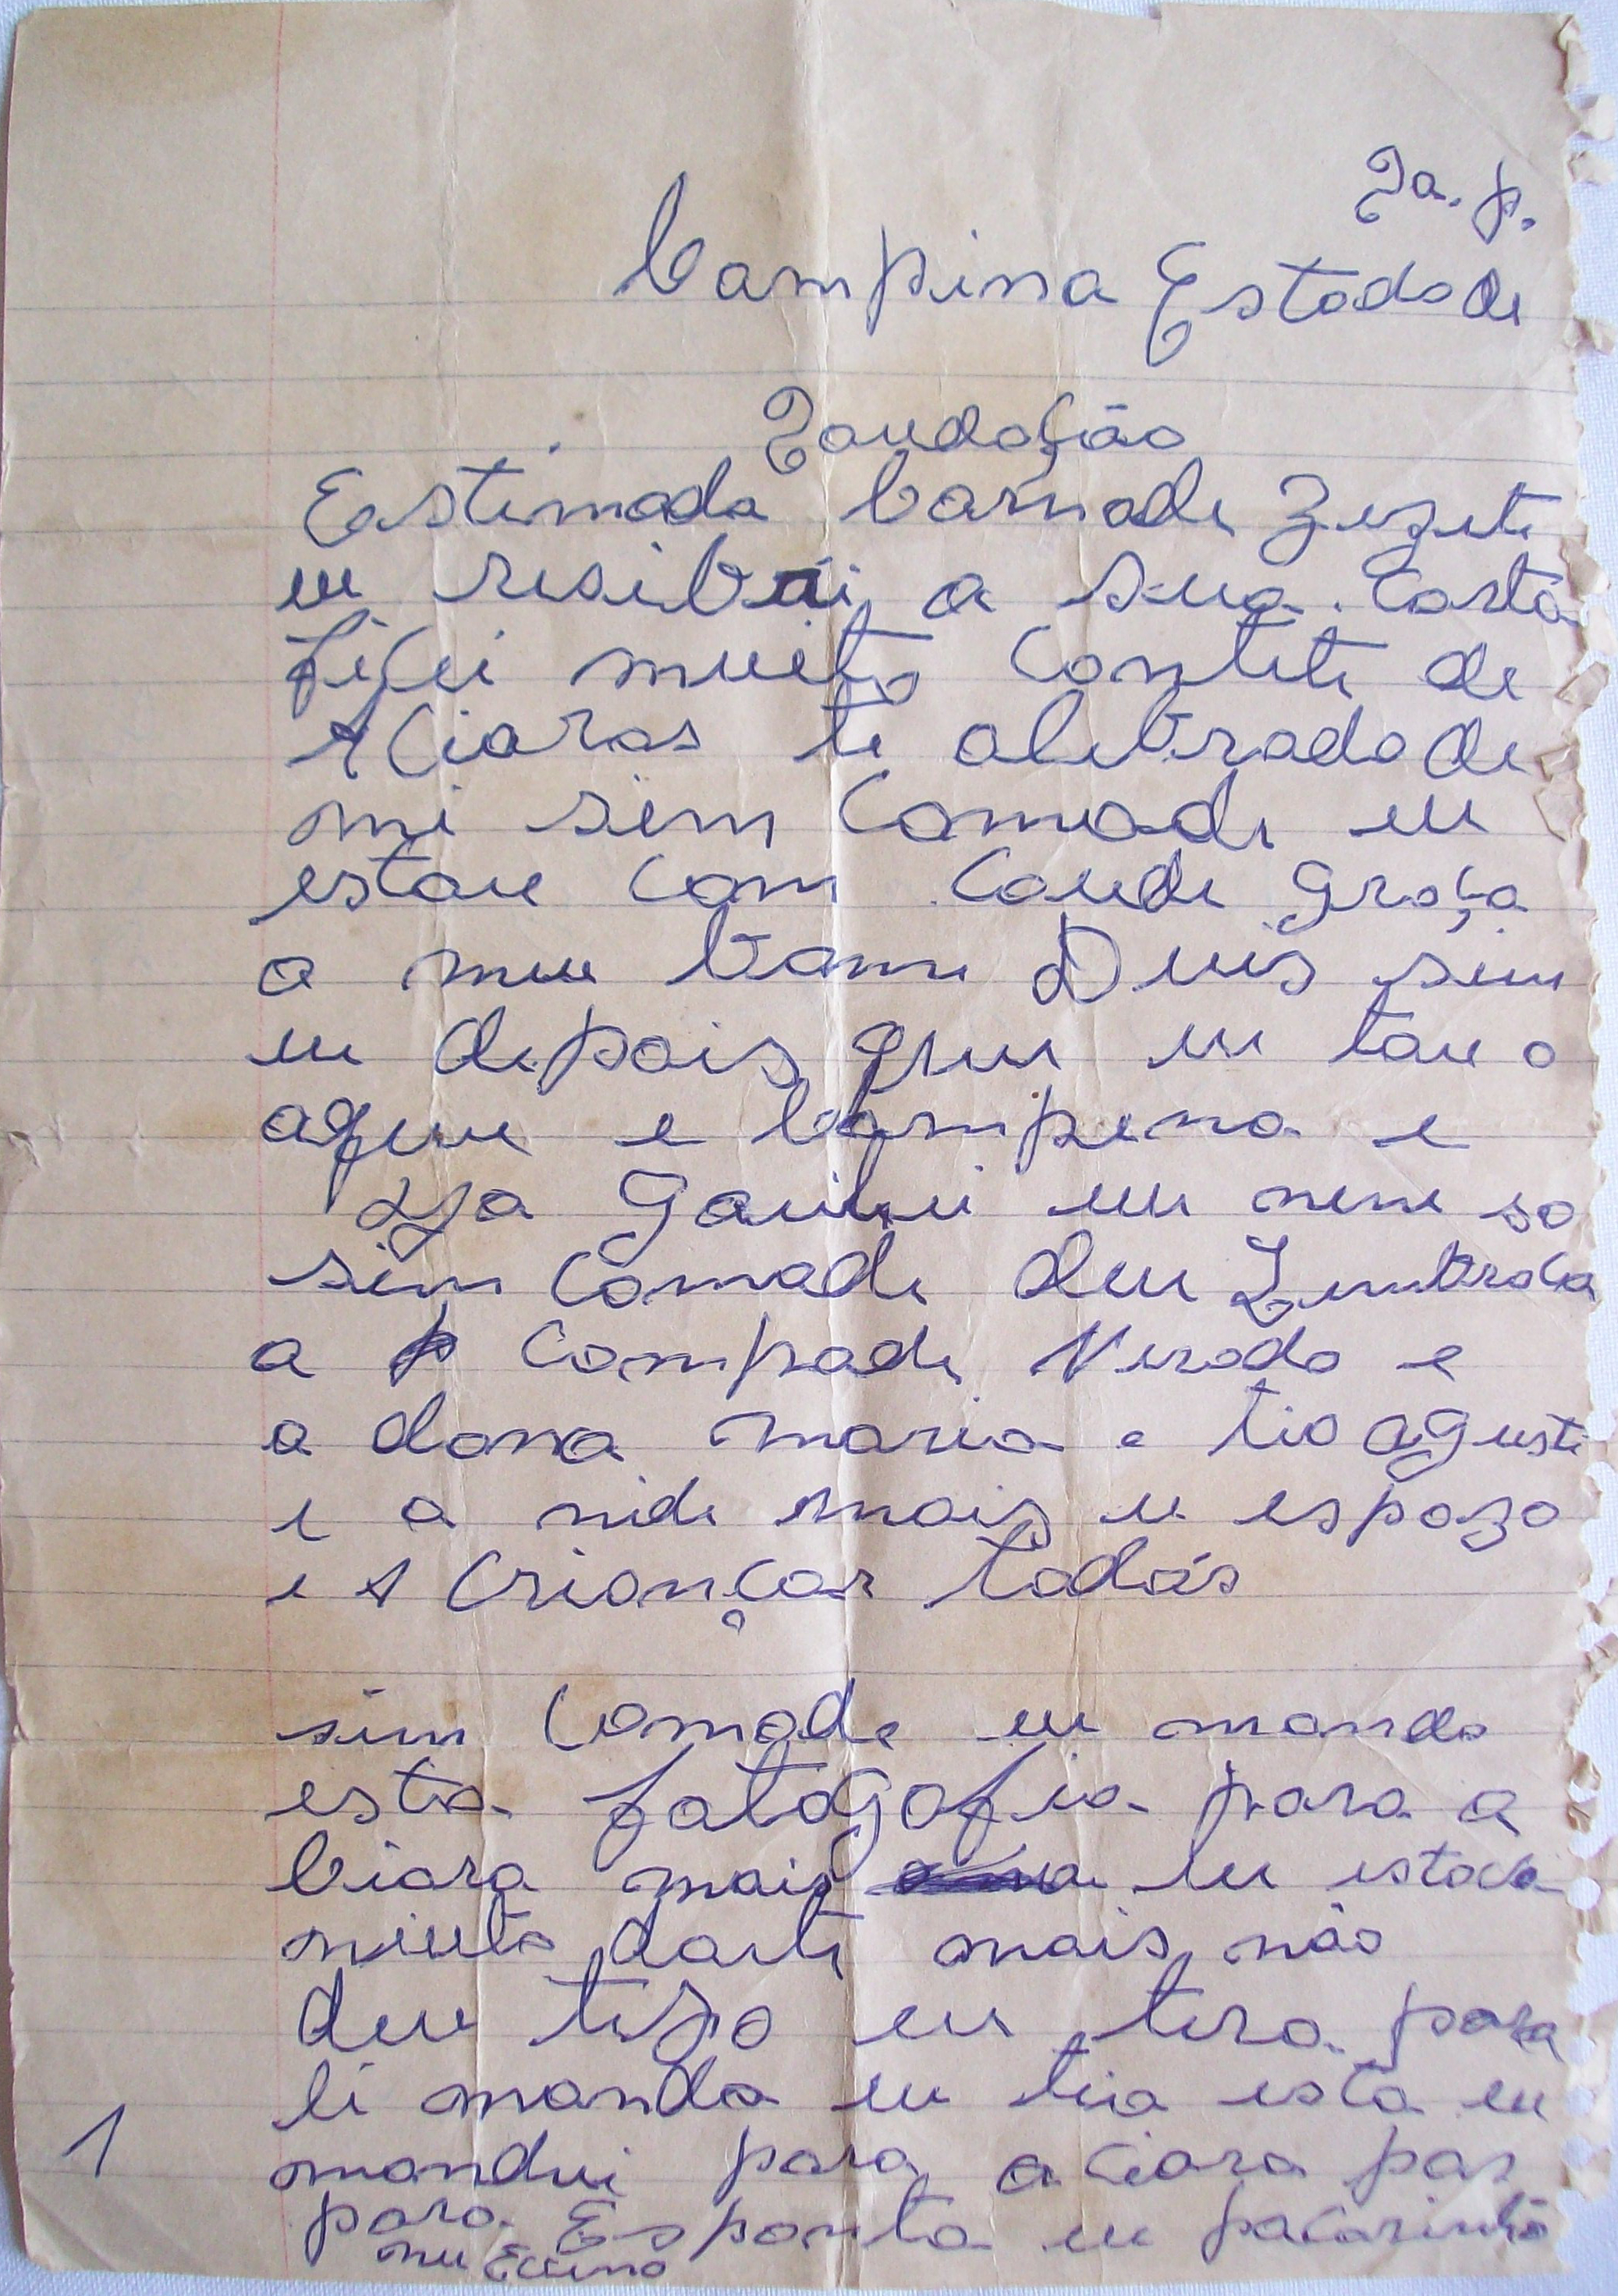 Sa. p.
Campina Estado de
Saudação
Estimada Comade Zezete
eu resibei a sua Carta
fiCei mueito Contete de
A Ciaras te alebrado de
mi sim Comade eu
estou Com Caude graça
a meu bam Deus sim
eu depois que eu tou o
aque e Campina e
Ja gaihei eu nene so
sim Comade deu Lembraca
a Compade Verado e
a dona maria e tio aguste
e a nide mais u espozo
e A Criançar todas
sim Comade eu mando
esta fatogafia para a
Ciara mais eu estava
muito darte mais não
deu tepo eu tera para
li manda eu tia esta eu
mandei para a Ciara par
para Esponta eu pacarinho
meu Ecuno
1